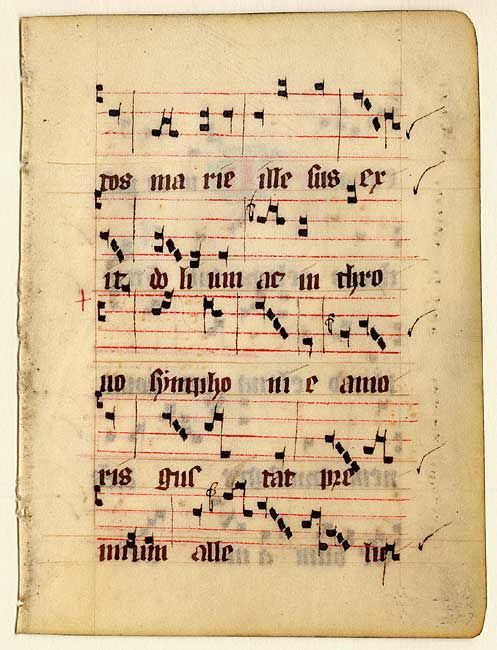 tos ma rie ille sus ex
it do li um ac in thro
no simpho ni e amo
ris gus tat pre
mium alle lu